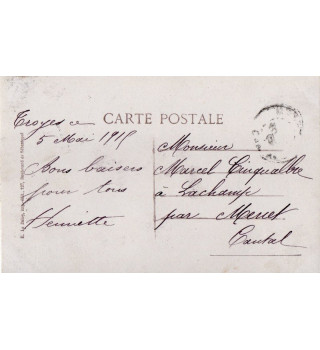 CARTE POSTALE
Troyes ce
5 Mai 1915
Bons baisers
pour tous
Henriette
Monsieur
Marcel Cinqualbre
à Lachamp
par Murat
Cantal